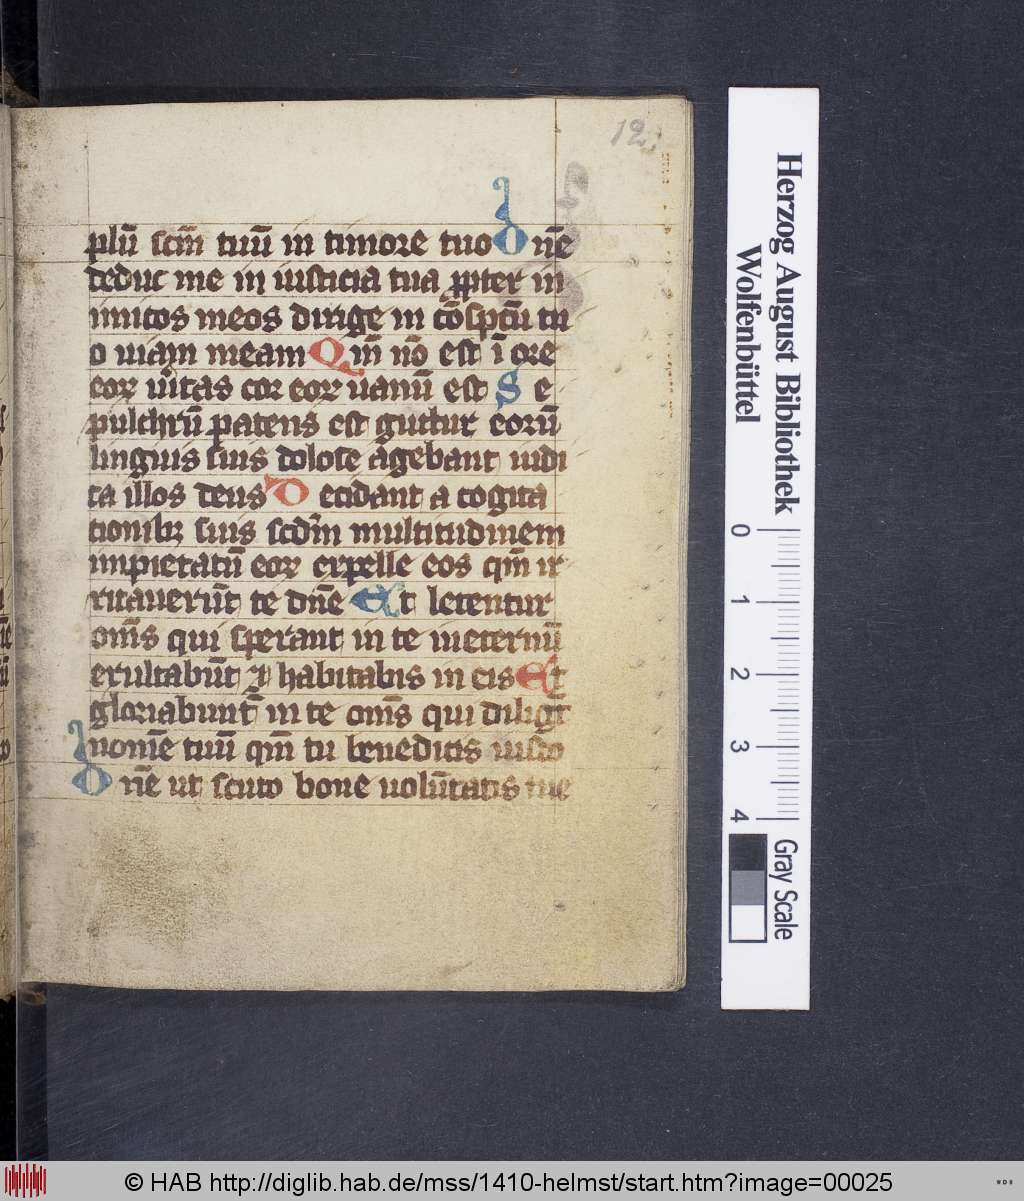 12
plū scm̄ tuū in timore tuo Dn̄e
deduc me in iusticia tua ꝓpter in
imicos meos dirige in cōspcū tu
o uiam meam Qm̄ nō est ī ore
eoꝝ ūitas cor eoꝝ uanū est Se
pulchrū patens est guttur eorū
linguis suis dolose agebant iudi
ca illos deus Decidant a cogita
tionibꝫ suis scdm̄ multitudinem
impietatū eoꝝ expelle eos qm̄ ir
ritauerūt te dn̄e Et letentur
om̄s qui sperant in te ineternū
exultabūt ⁊ habitabis in eis Et
gloriabunt̄ in te om̄s qui diligūt
nomē tuū qm̄ tu benedicis iusto
Dn̄e ut scuto bone uolūtatis tue
Herzog August Bibliothek
Wolfenbüttel
0 1 2 3 4
Gray Scale
© HAB http://diglib.hab.de/mss/1410-helmst/start.htm?image=00025